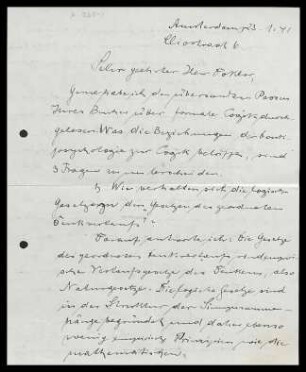 Amsterdam, 23.1.41
Sehr geehrter Herr Doktor,
Gerne habe ich den übersandten Passus
Ihres Buches über formale Logik durch-
gelesen. Was die Beziehungen der Denk-
psychologie zur Logik betrifft, sind
3 Fragen zu unterscheiden.
1) Wie verhalten sich die logischen
Gesetze zu den Gesetzen des geordneten
Denkverlaufs?
Darauf antworte ich: Die Gesetze
des geordneten Denkverlaufs sind empi-
rische Verlaufsgesetze des Denkens, also
Naturgesetze. Die logischen Gesetze sind
in der Struktur der
begründet und daher ebenso
wenig empirische Prinzipien wie die
mathematischen.